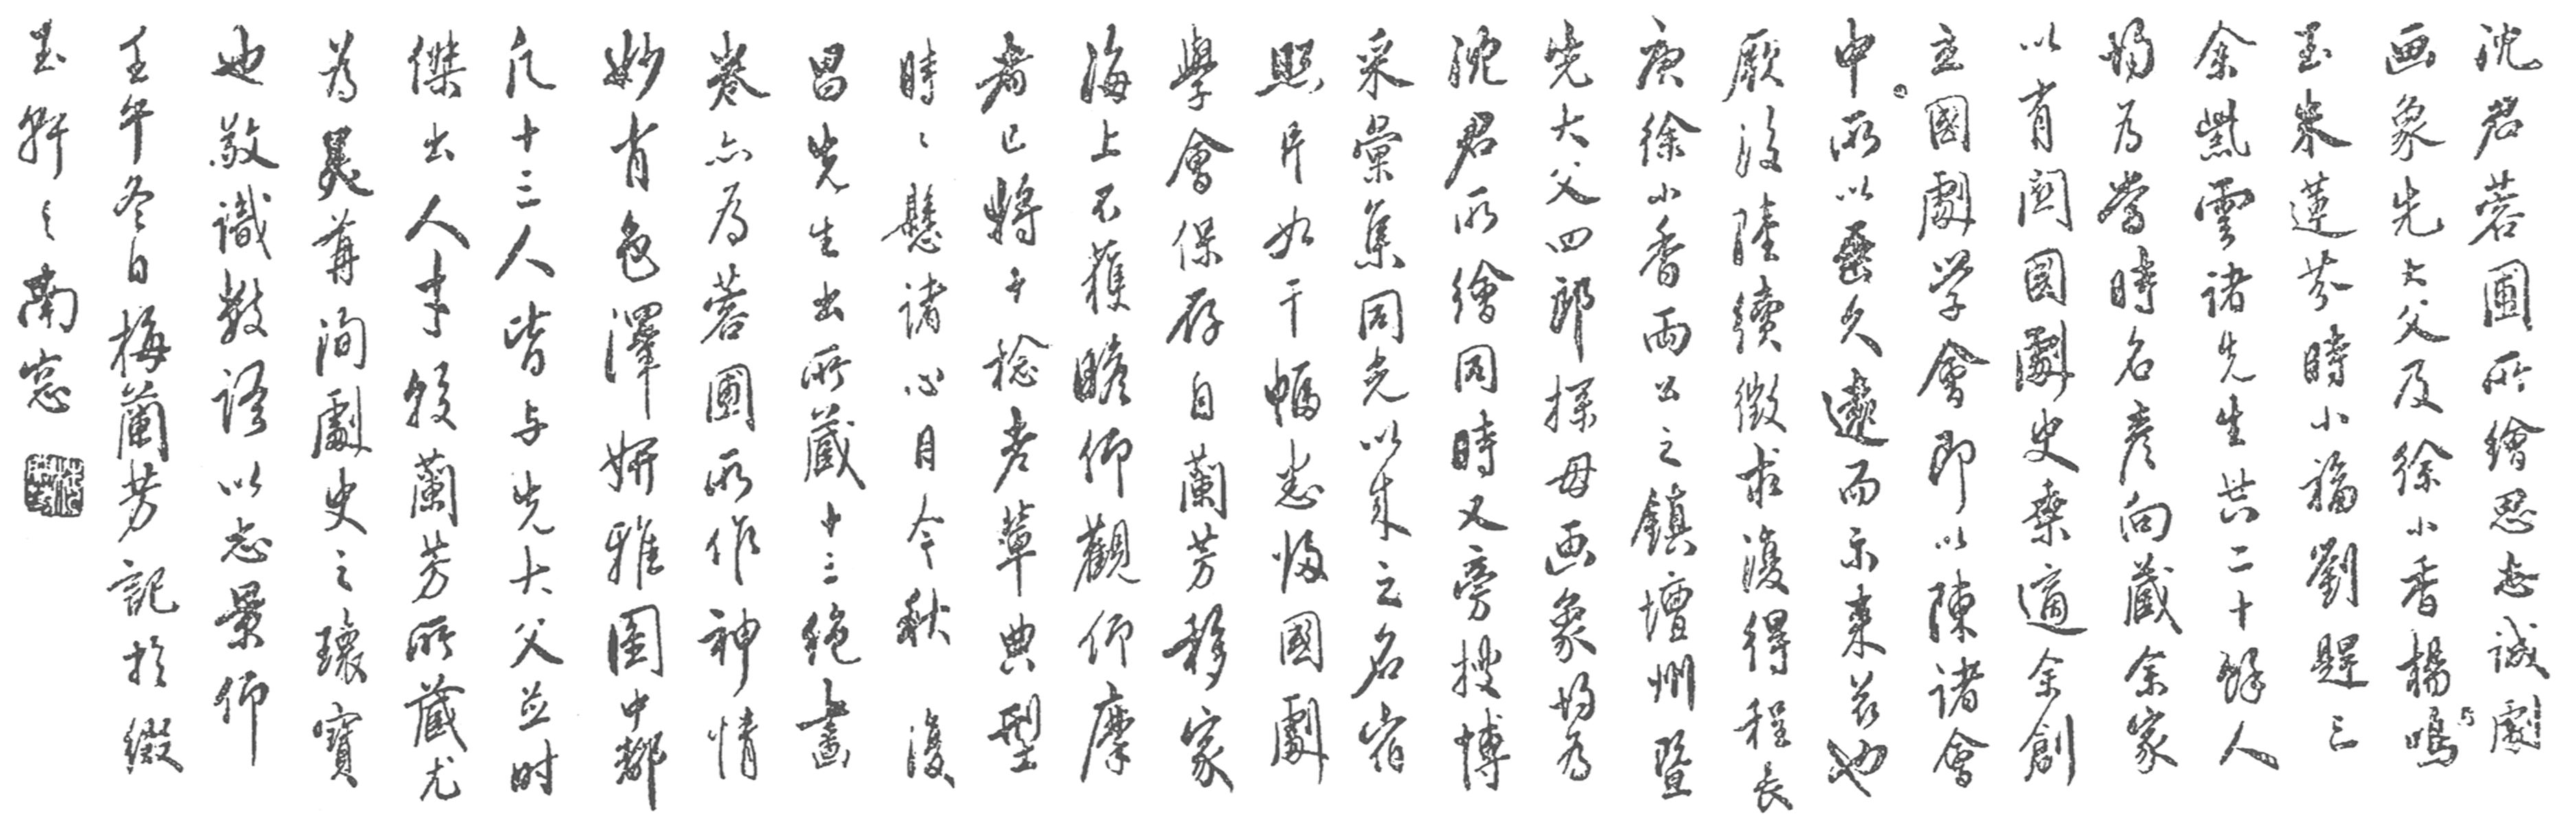 沈君蓉圃所繪思志誠劇
画象先大父及徐小香楊鳴
玉朱蓮芬時小福劉趕三
余紫雲諸先生共二十餘人
均為當時名彥向藏余家
以有関國劇史乘適余創
立國劇学會即以陳諸會
中所以垂久遠而示來茲也
厥後陸續徵求復得程長
庚徐小香兩公之鎮壇州暨
先大父四郎探母画象均為
沈君所繪同時又旁搜博
采彙集同光以來之名宿
照片如干幅悉归國劇
學會保存自蘭芳移家
海上不獲瞻仰觀仰摩
者已將十稔老輩典型
時時懸諸心目今秋復
昌先生出所藏十三絕畫
卷亦為蓉圃所作神情
妙肖色澤妍雅圖中都
凡十三人皆与先大父並时
傑出人才較蘭芳所藏尤
為美萬洵劇史之瓌寶
也敬識數語以志景仰
壬午冬日梅蘭芳記於綴
玉軒之南窓